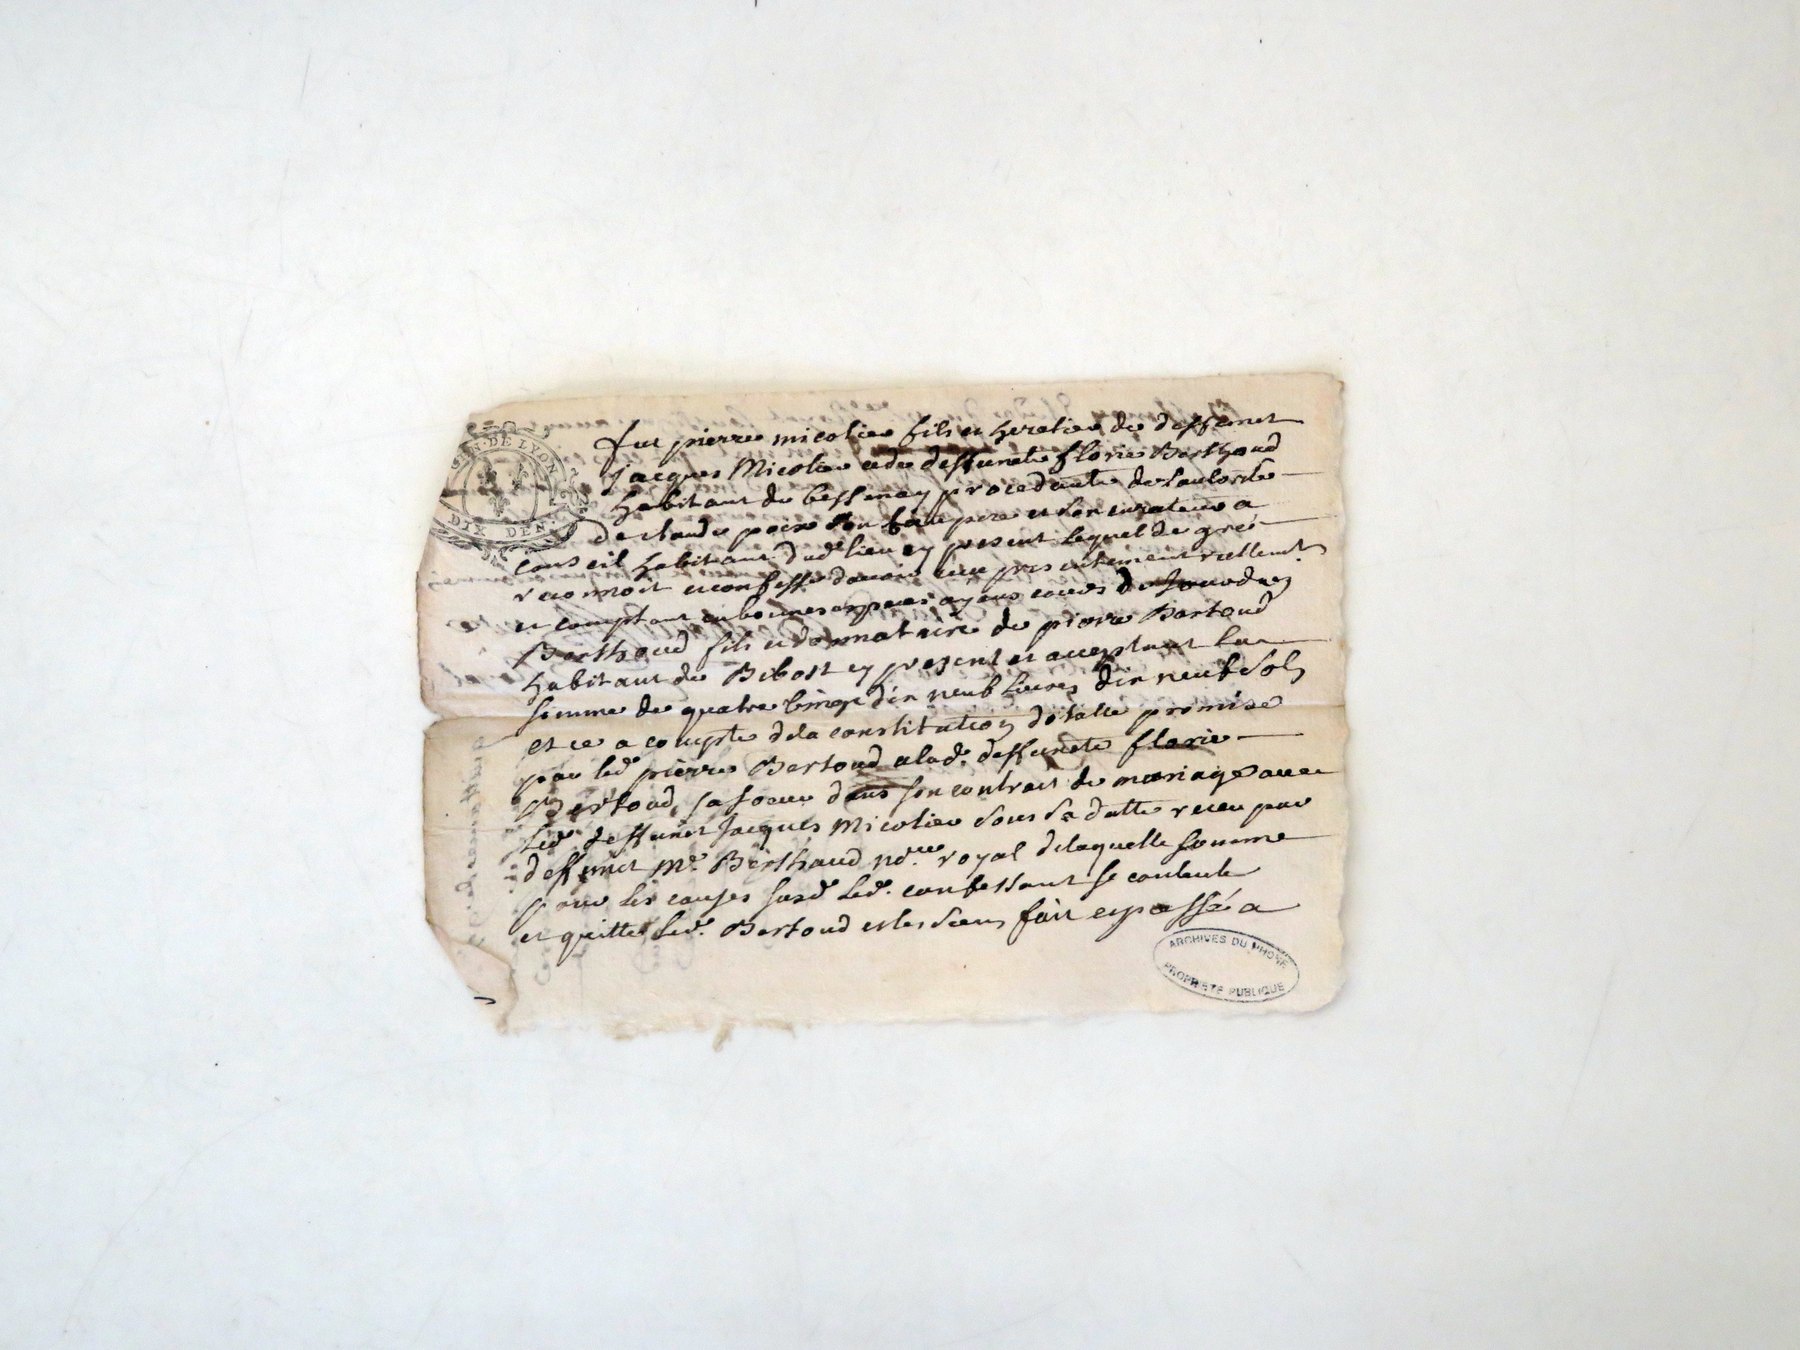 GEN. DE LYON
DIX DEN.
fut pierre micolier fils et heretier de deffunct
Jacques Micolier et de deffuncte florie Berthoud
habitant de bessenay procedante de lautorité
de claude poix son beaupere et son curateur a
conseil habitant dud lieu ey present lequel de gré
reconnoit et confesse davoir receu presentement reellemt
et comptant en bonnes especes ayans cours de
Berthoud fils et donnataire de pierre Bertoud
habitant de Bibost ey present et acceptant la
somme de quatre vingt dix neufb livres dix neufb sols
et ce a compte dela constitution dotalle promise
par led. pierre Bertoud alad. deffuncte florie
Bertoud, sa soeur dans son contrait de mariage avec
led. deffunct Jacques Micolier sous sa datte receu par
deffunct Me. Berthaud nore. royal delaquelle somme
pour les causes susd led. confessant se contente
et quitte led. Bertoud et les siens fait et passé a
ARCHIVES DU RHONE
PROPRIETE PUBLIQUE